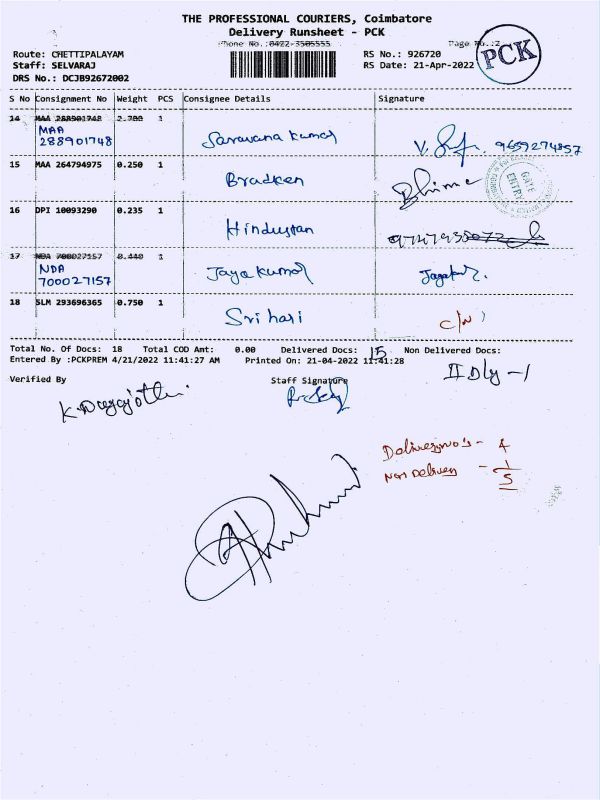 THE PROFESSIONAL COURIERS, Coimbatore
Delivery Runsheet - PCK
Phone No.:0422-3505555 Page No.:2
PCK
Route: CHETTIPALAYAM RS No.: 926720
Staff: SELVARAJ RS Date: 21-Apr-2022
DRS No.: DCJB92672002
S No Consignment No Weight PCS Consignee Details Signature
14 MAA 288901748 2.700 1
MAA
288901748 Saravana kumar V. 9659274857
15 MAA 264794975 0.250 1
Bradken Bhima
GATE ENTRY
16 DPI 10093290 0.235 1
Hindustan
17 NDA 700027157 0.440 1
NDA
700027157 Jayakumar
18 SLM 293696365 0.750 1
Srihari C/N
Total No. Of Docs: 18 Total COD Amt: 0.00 Delivered Docs: 15 Non Delivered Docs:
Entered By :PCKPREM 4/21/2022 11:41:27 AM Printed On: 21-04-2022 11:41:28
II Dly -1
Verified By Staff Signature
Non Delivery - 1
5